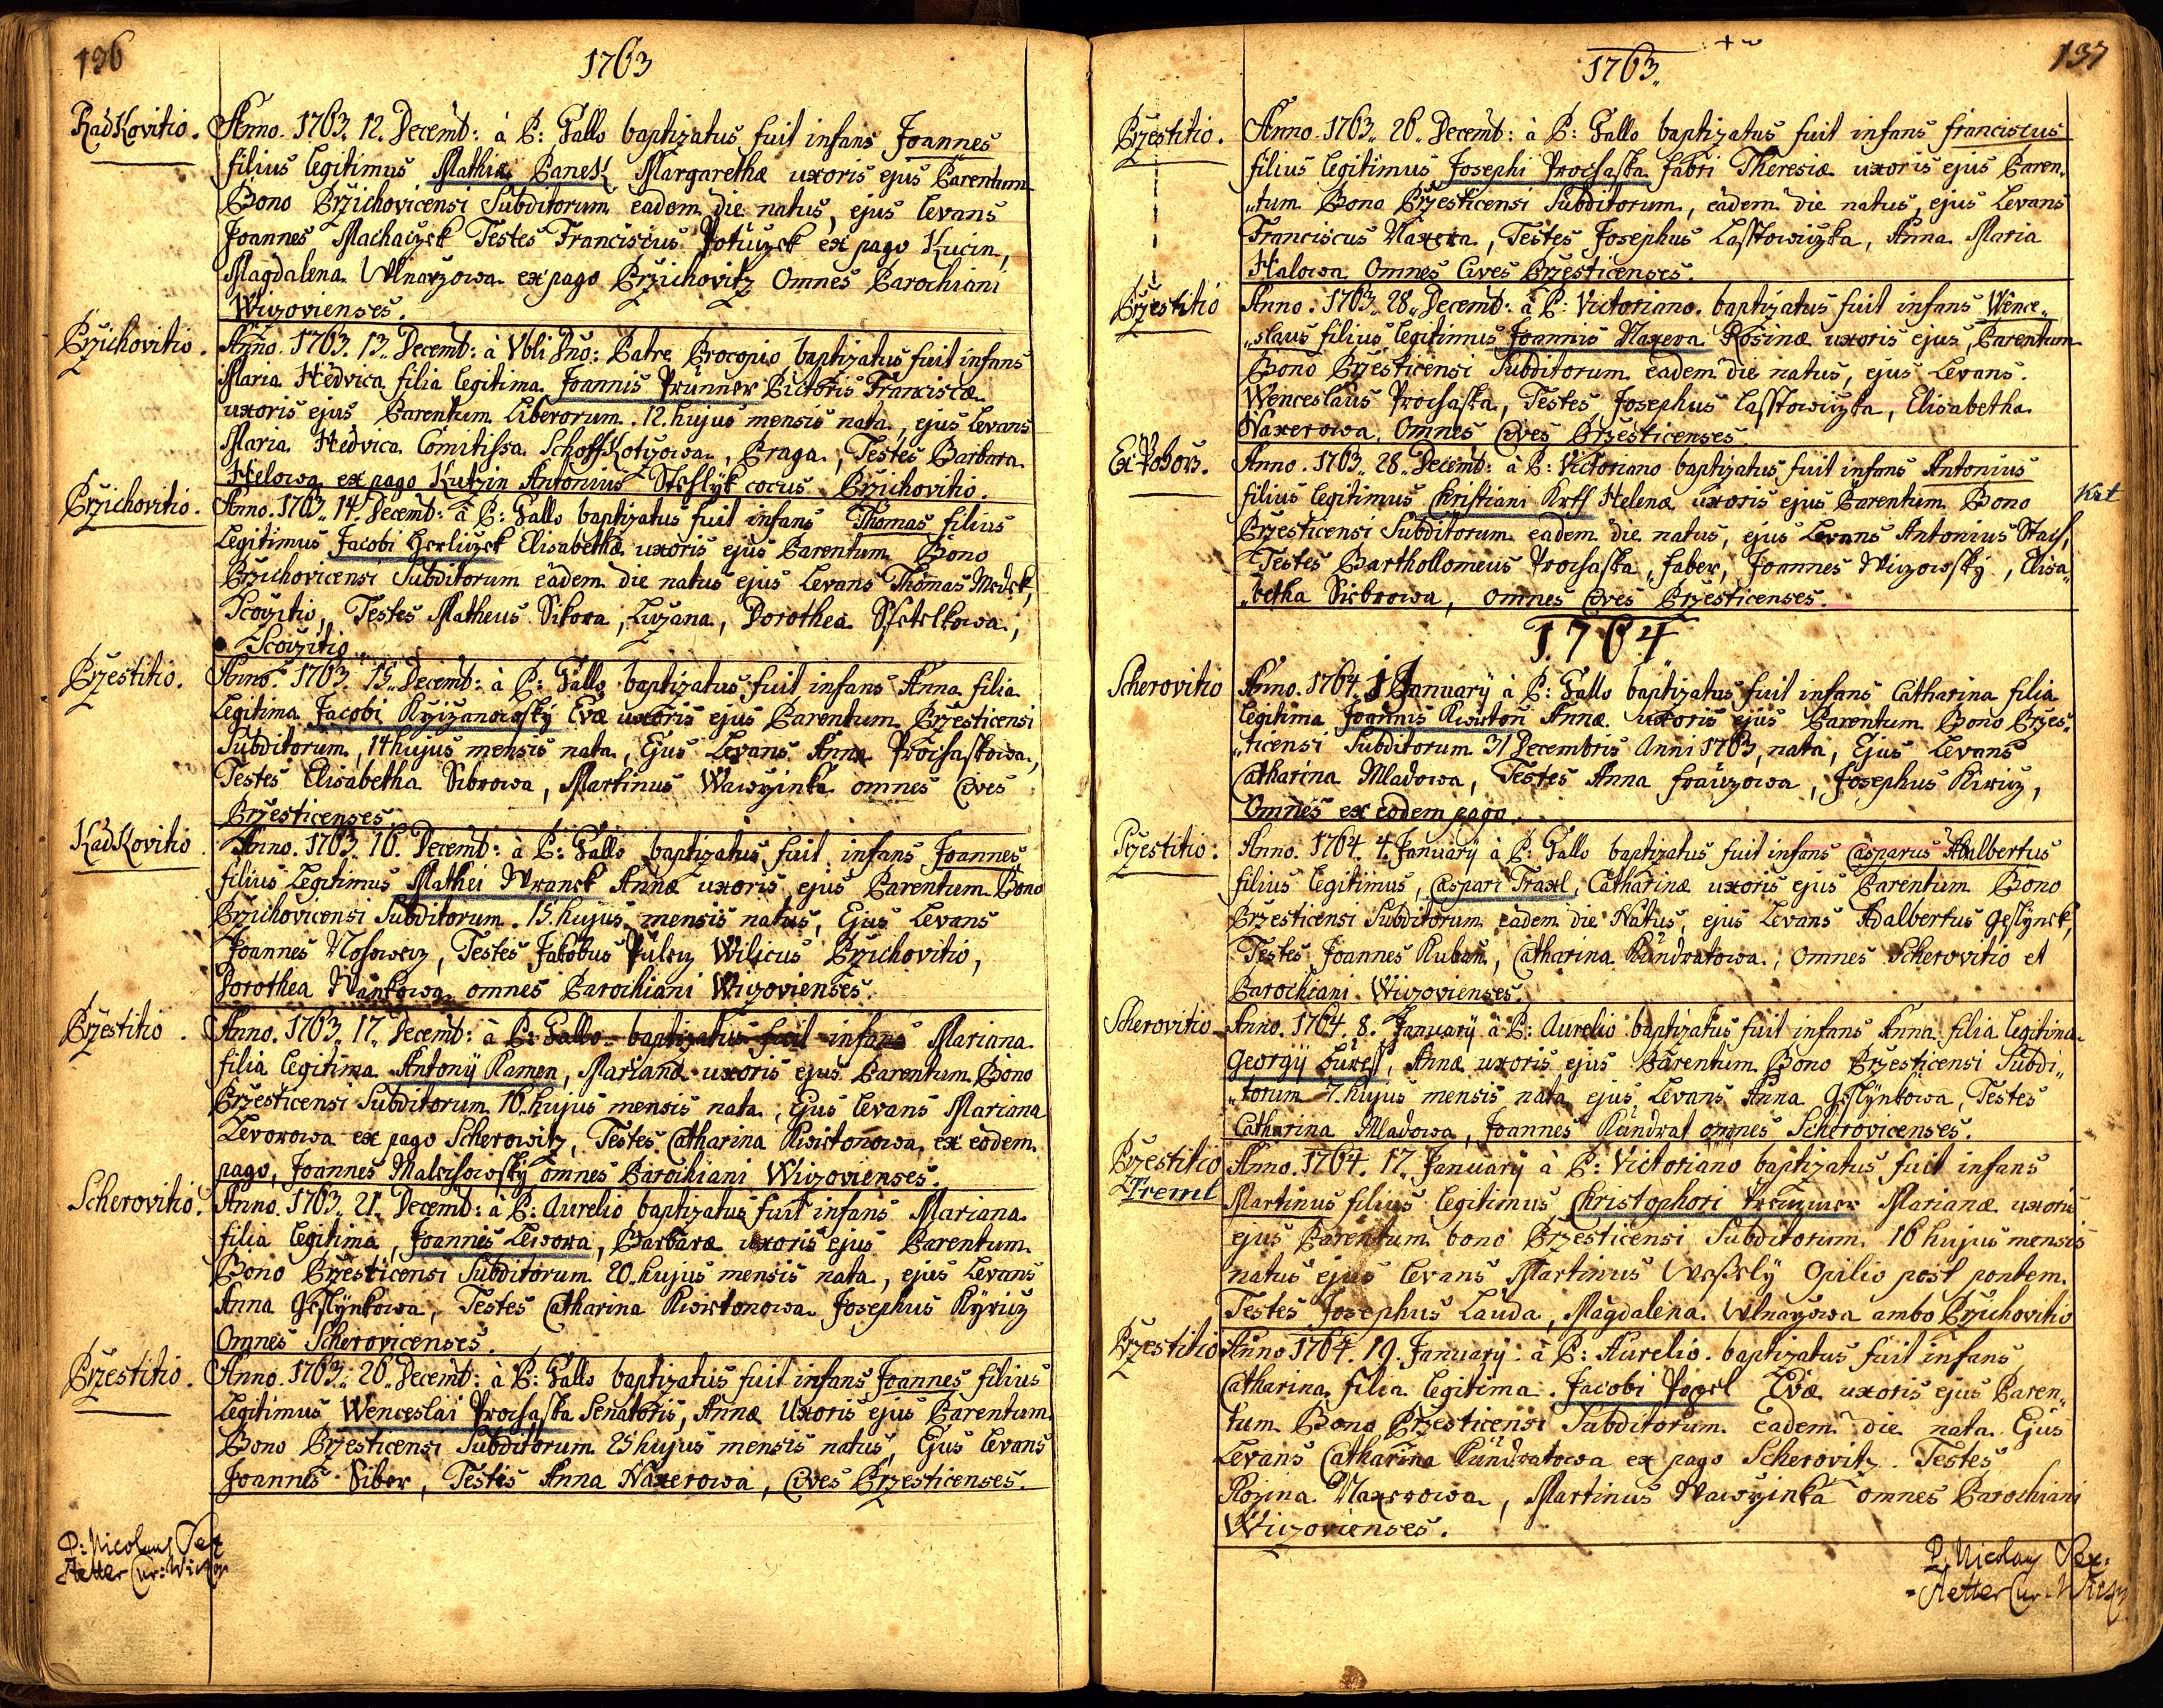 136
1763
RadKovitio.
Anno. 1763. 12. Decemb: à P: Gallo baptizatus fuit infans Joannes
filius legitimus Mathiæ PaneK Margarethæ uxoris ejus Parentum
Bono Przichovicensi Subditorum eadem die natus, ejus levans
Joannes Machaczek Testes Franciscus Potuczek ex pago Kucin,
Magdalena Wlnarzowa ex pago Przichovitz Omnes Parochiani
Wiczovienses.
Przichovitio.
Anno. 1763. 13. Decemb: à Vbli Dno: Patre Procopio baptizatus fuit infans
Maria Hedvica filia legitima Joannis Prunner Pictoris Franciscæ
uxoris ejus Parentum Liberorum. 12. hujus mensis nata, ejus Levans
Maria Hedvica Comitissa SchoffKotizowa, Praga, Testes Barbara
Helowa ex pago Kutzin Antonius Stehlyk cocus Przichovitio.
Przichovitio.
Anno. 1763. 14. Decemb: à P: Gallo baptizatus fuit infans Thomas filius
Legitimus Jacobi Herliczek Elisabethæ uxoris ejus Parentum Bono
Przichovicensi Subditorum eadem die natus ejus Levans Thomas Medek,
Scovitio, Testes Matheus Sikora, Luzana, Dorothea Sstetkowa,
Scovitio.
Przestitio.
Anno. 1763. 15. Decemb: à P: Gallo baptizatus fuit infans Anna filia
Legitima Jacobi Krzizanowsky Evæ uxoris ejus Parentum Przesticensi
Subditorum, 14 hujus mensis nata, Ejus Levans Anna Prochaskowa,
Testes Elisabetha Sibrowa, Martinus Wawrzinka omnes Cives
Przesticenses.
RadKovitio
Anno. 1763. 16. Decemb: à P: Gallo baptizatus fuit infans Joannes
filius Legitimus Mathei Wranek Annæ uxoris ejus Parentum Bono
Przichovicensi Subditorum. 15. hujus mensis natus, Ejus Levans
Joannes Nosowecz, Testes Jakobus Pulecz Wilicus Przichovitio,
Dorothea Wankowa omnes Parochiani Wiczovienses.
Przestitio.
Anno. 1763. 17. Decemb: à P: Gallo baptizatus fuit infans Mariana
filia legitima Antonÿ Kamen, Marianæ uxoris ejus Parentum Bono
Przesticensi Subditorum 16. hujus mensis nata, Ejus levans Mariana
Levorowa ex pago Scherowitz, Testes Catharina Kwietonowa ex eodem
pago, Joannes Malechowsky omnes Parochiani Wiczovienses.
Scherovitio.
Anno. 1763. 21. Decemb: à P: Aurelio baptizatus fuit infans Mariana
filia legitima, Joannes Lewora, Barbaræ uxoris ejus Parentum
Bono Przesticensi Subditorum 20. hujus mensis nata, ejus Levans
Anna Geslynkowa, Testes Catharina Kwietonowa Josephus Kyricz
Omnes Scherovicenses.
Przestitio.
Anno. 1763. 26. Decemb: à P: Gallo baptizatus fuit infans Joannes filius
Legitimus Wenceslai Prochaska Senatoris, Annæ Uxoris ejus Parentum
Bono Przesticensi Subditorum 25 hujus mensis natus, Ejus levans
Joannes Siber, Testes Anna Naxerowa, Cives Przesticenses.
P: Nicolaus
1763.
137
Przestitio.
Anno. 1763. 26. Decemb: à P: Gallo baptizatus fuit infans franciscus
filius legitimus Josephi Prochaska fabri Theresiæ uxoris ejus Paren„
„tum Bono Przesticensi Subditorum, eadem die natus, ejus Levans
Franciscus Naxera, Testes Josephus Lasstowiczka, Anna Maria
Halowa Omnes Cives Przesticenses.
Przestitio
Anno. 1763. 28. Decemb: à P: Victoriano. baptizatus fuit infans Wence„
„slaus filius legitimus Joannis Naxera Rosinæ uxoris ejus, Parentum
Bono Przesticensi Subditorum eadem die natus, ejus Levans.
Wenceslaus Prochaska, Testes Josephus Lasstowiczka, Elisabetha
Naxerowa. Omnes Cives Przesticenses.
Ex Dobow.
Anno. 1763. 28. Decemb: à P: Victoriano baptizatus fuit infans Antonius
filius legitimus Christiani Krtt Helenæ uxoris ejus Parentum Bono
Krt
Przesticensi Subditorum eadem die natus, ejus Levans Antonius Stach,
Testes Barthollomeus Prochaska, faber, Joannes Wiczowsky, Elisa„
„betha Siebrowa, omnes Cives Przesticenses.
1764
Scherovitio
Anno. 1764. 1 Januarÿ à P: Gallo baptizatus fuit infans Catharina filia
legitima Joannis Kwieton Annæ uxoris ejus Parentum Bono Przes„
„ticensi Subditorum 31 Decembris Anni 1763, nata, Ejus Levans
Catharina Mladowa, Testes Anna frauzowa, Josephus Kiricz,
Omnes ex eodem pago.
Przestitio.
Anno. 1764. 4. Januarÿ à P: Gallo baptizatus fuit infans Casparus Adalbertus
filius legitimus, Caspari Traxl, Catharinæ uxoris ejus Parentum Bono
Przesticensi Subditorum eadem die Natus, ejus Levans Adalbertus Geslynek,
Testes Joannes Kuban, Catharina Kundratowa, omnes Scherovitio et
Parochiani Wiczovienses.
Scherovitio
Anno. 1764. 8. Januarÿ à P: Aurelio baptizatus fuit infans Anna filia legitima
Georgÿ Buress, Annæ uxoris ejus Parentum Bono Przesticensi Subdi„
„torum 7. hujus mensis nata ejus Levans Anna Geslynkowa, Testes
Catharina Mladowa, Joannes Kundrat omnes Scherovicenses.
Przestitio
Treml
Anno. 1764. 17. Januarÿ à P: Victoriano baptizatus fuit infans
Martinus filius legitimus, Christophori Premmer Marianæ uxoris
ejus Parentum bono Przesticensi Subditorum. 16 hujus mensis
natus ejus levans Martinus Wesselÿ Opilio post pontem.
Testes Josephus Lauda, Magdalena Wlnarzowa ambo Przichovitio
Przestitio
Anno 1764. 19. Januarÿ à P: Aurelio. baptizatus fuit infans
Catharina filia legitima. Jacobi Pogel Evæ uxoris ejus Paren„
tum Bono Przesticensi Subditorum eadem die nata Ejus
Levans Catharina Kündratowa ex pago Scherovitz. Testes
Rozina Naxerowa, Martinus Wawrzinka omnes Parochiani
Wiczovienses.
P. Nicolaus